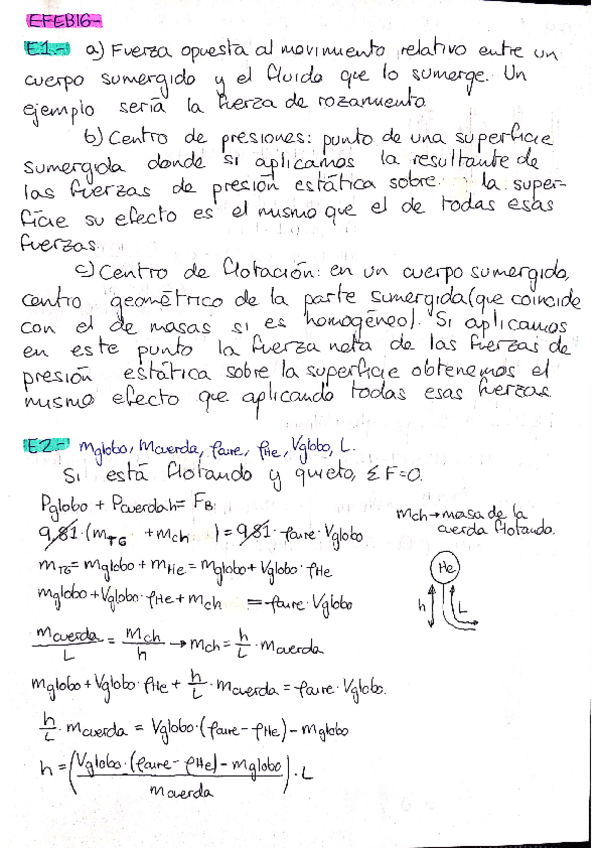 EFEB16-
E1.- a) Fuerza opuesta al movimiento relativo entre un
cuerpo sumergido y el fluido que lo sumerge. Un
ejemplo sería la fuerza de rozamiento.
b) Centro de presiones: punto de una superficie
sumergida donde si aplicamos la resultante de
las fuerzas de presión estática sobre la super-
ficie su efecto es el mismo que el de todas esas
fuerzas.
c) Centro de flotación: en un cuerpo sumergido,
centro geométrico de la parte sumergida (que coincide
con el de masas si es homogéneo). Si aplicamos
en este punto la fuerza neta de las fuerzas de
presión estática sobre la superficie obtenemos el
mismo efecto que aplicando todas esas fuerzas.
E2.- mglobo, mcuerda, ρaire, ρHe, Vglobo, L.
Si está flotando y quieto, ΣF=0.
Pglobo + Pcuerdah = FB
9,81·(mTG + mch) = 9,81·ρaire·Vglobo
mch → masa de la
cuerda flotando.
mTG = mglobo + mHe = mglobo + Vglobo·ρHe
He
mglobo + Vglobo·ρHe + mch = ρaire·Vglobo
h L
mcuerda/L = mch/h → mch = h/L·mcuerda
mglobo + Vglobo·ρHe + h/L·mcuerda = ρaire·Vglobo.
h/L·mcuerda = Vglobo·(ρaire - ρHe) - mglobo
h = (Vglobo·(ρaire - ρHe) - mglobo / mcuerda)·L